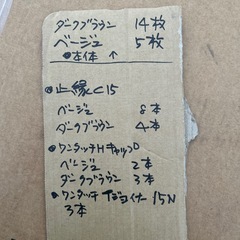 ダークブラウン 14枚
ベージュ 5枚
●本体 ↑
●止縁C15
ベージュ 8本
ダークブラウン 4本
●ワンタッチHキャップD
ベージュ 2本
ダークブラウン 3本
●ワンタッチ ジョイナー 15N
3本